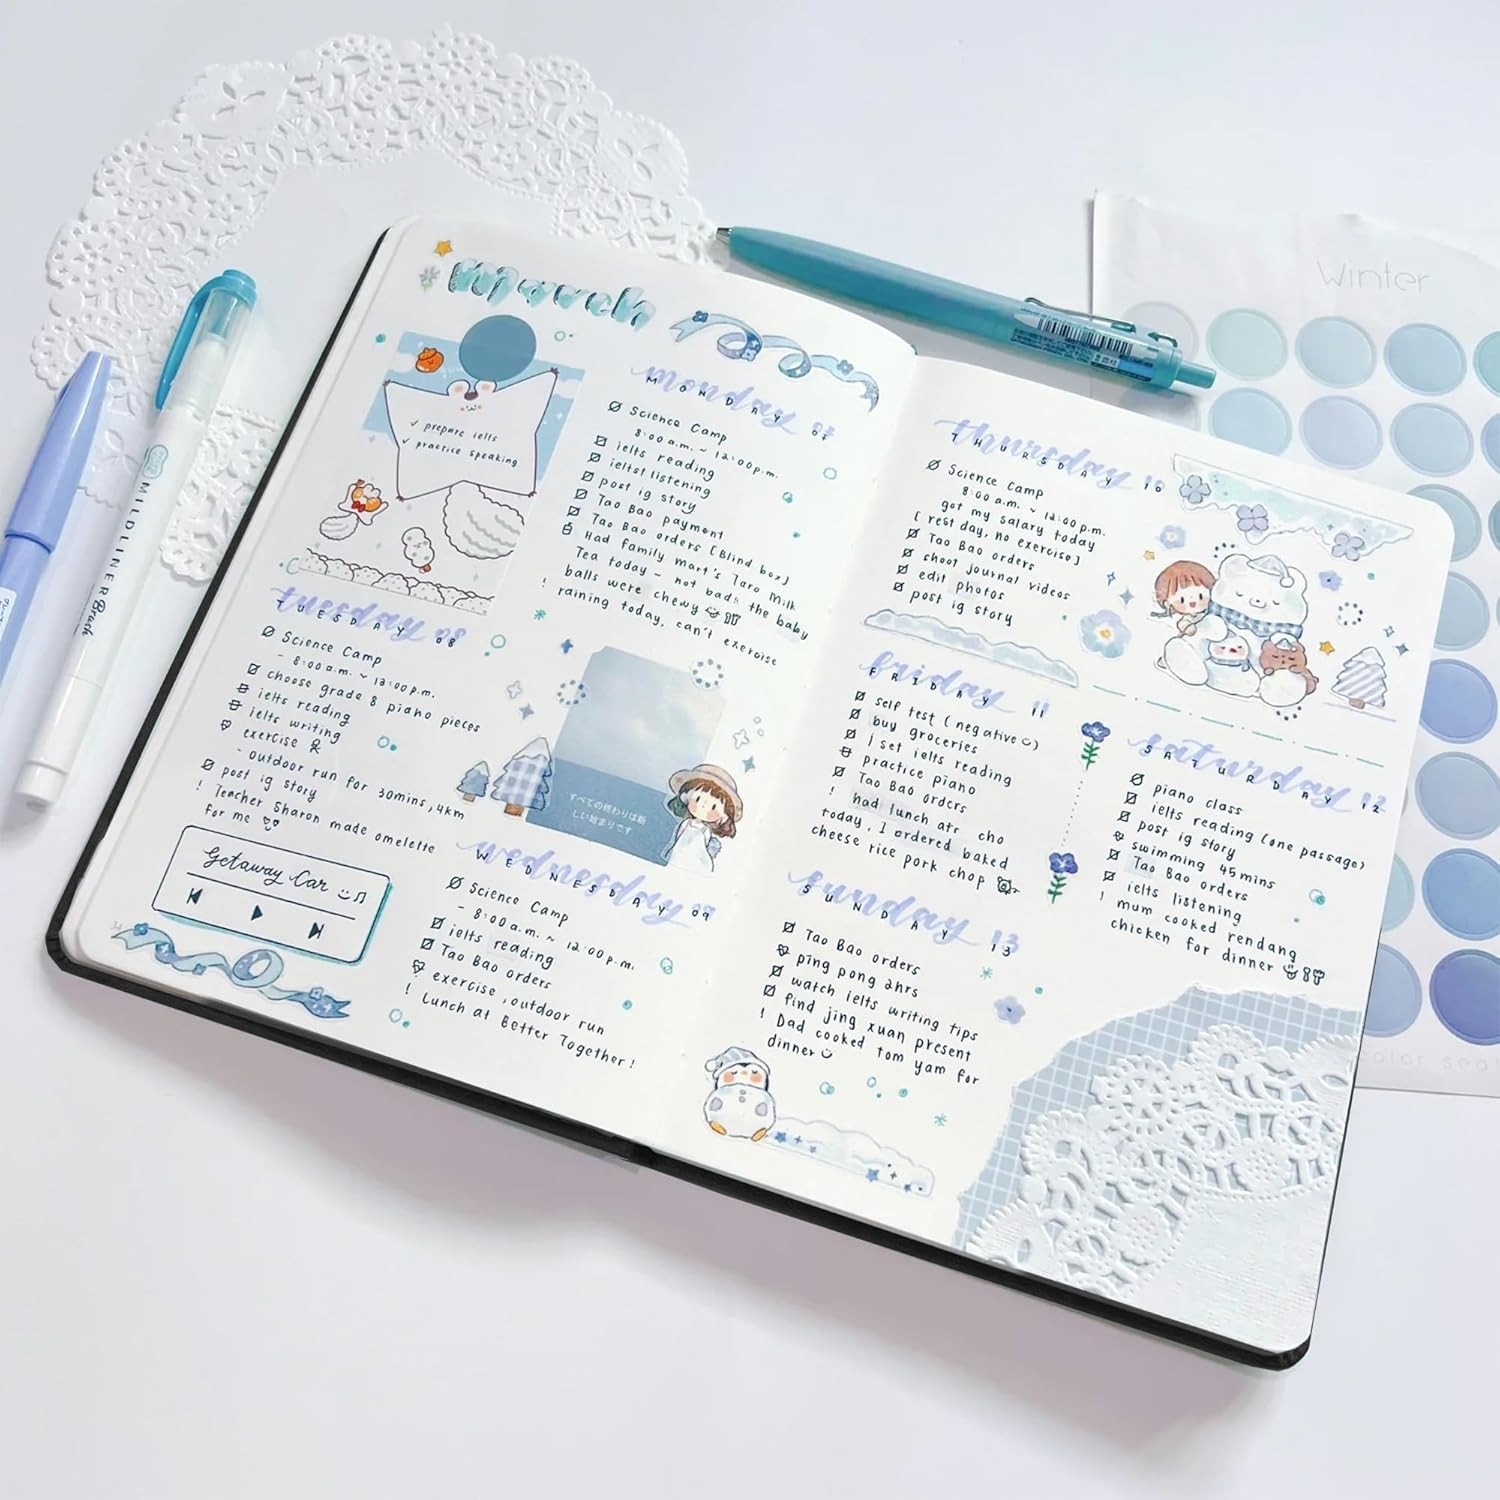 March
✓ prepare ielts
✓ practice speaking
monday 07
MONDAY
Science Camp
8:00 a.m. ~ 12:00 p.m.
ielts reading
ieltst listening
post ig story
Tao Bao payment
Tao Bao orders [Blind box]
Had family mart's Taro Milk
Tea today - not bad!! the baby
balls were chewy
! raining today, can't exercise
tuesday 08
TUESDAY
Science Camp
- 8:00 a.m. ~ 12:00 p.m.
choose grade 8 piano pieces
ielts reading
ielts writing
exercise
- outdoor run for 30mins, 4km
post ig story
! Teacher Sharon made omelette
for me
Getaway Car
34
すべての終わりは新
しい始まりです
wednesday 09
WEDNESDAY
Science Camp
- 8:00 a.m. ~ 12:00 p.m.
ielts reading
Tao Bao orders
exercise, outdoor run
! Lunch at Better Together!
thursday 10
THURSDAY
Science Camp
8:00 a.m. ~ 12:00 p.m.
got my salary today
[rest day, no exercise]
Tao Bao orders
shoot journal videos
edit photos
post ig story
friday 11
FRIDAY
self test (negative)
buy groceries
1 set ielts reading
practice piano
Tao Bao orders
! had lunch at cho
today, I ordered baked
cheese rice pork chop
saturday 12
SATURDAY
piano class
ielts reading (one passage)
post ig story
swimming 45mins
Tao Bao orders
ielts listening
! mum cooked rendang
chicken for dinner
sunday 13
SUNDAY
Tao Bao orders
ping pong 2hrs
watch ielts writing tips
find jing xuan present
! Dad cooked tom yam for
dinner
MILDLINER Brush
Winter
color seal